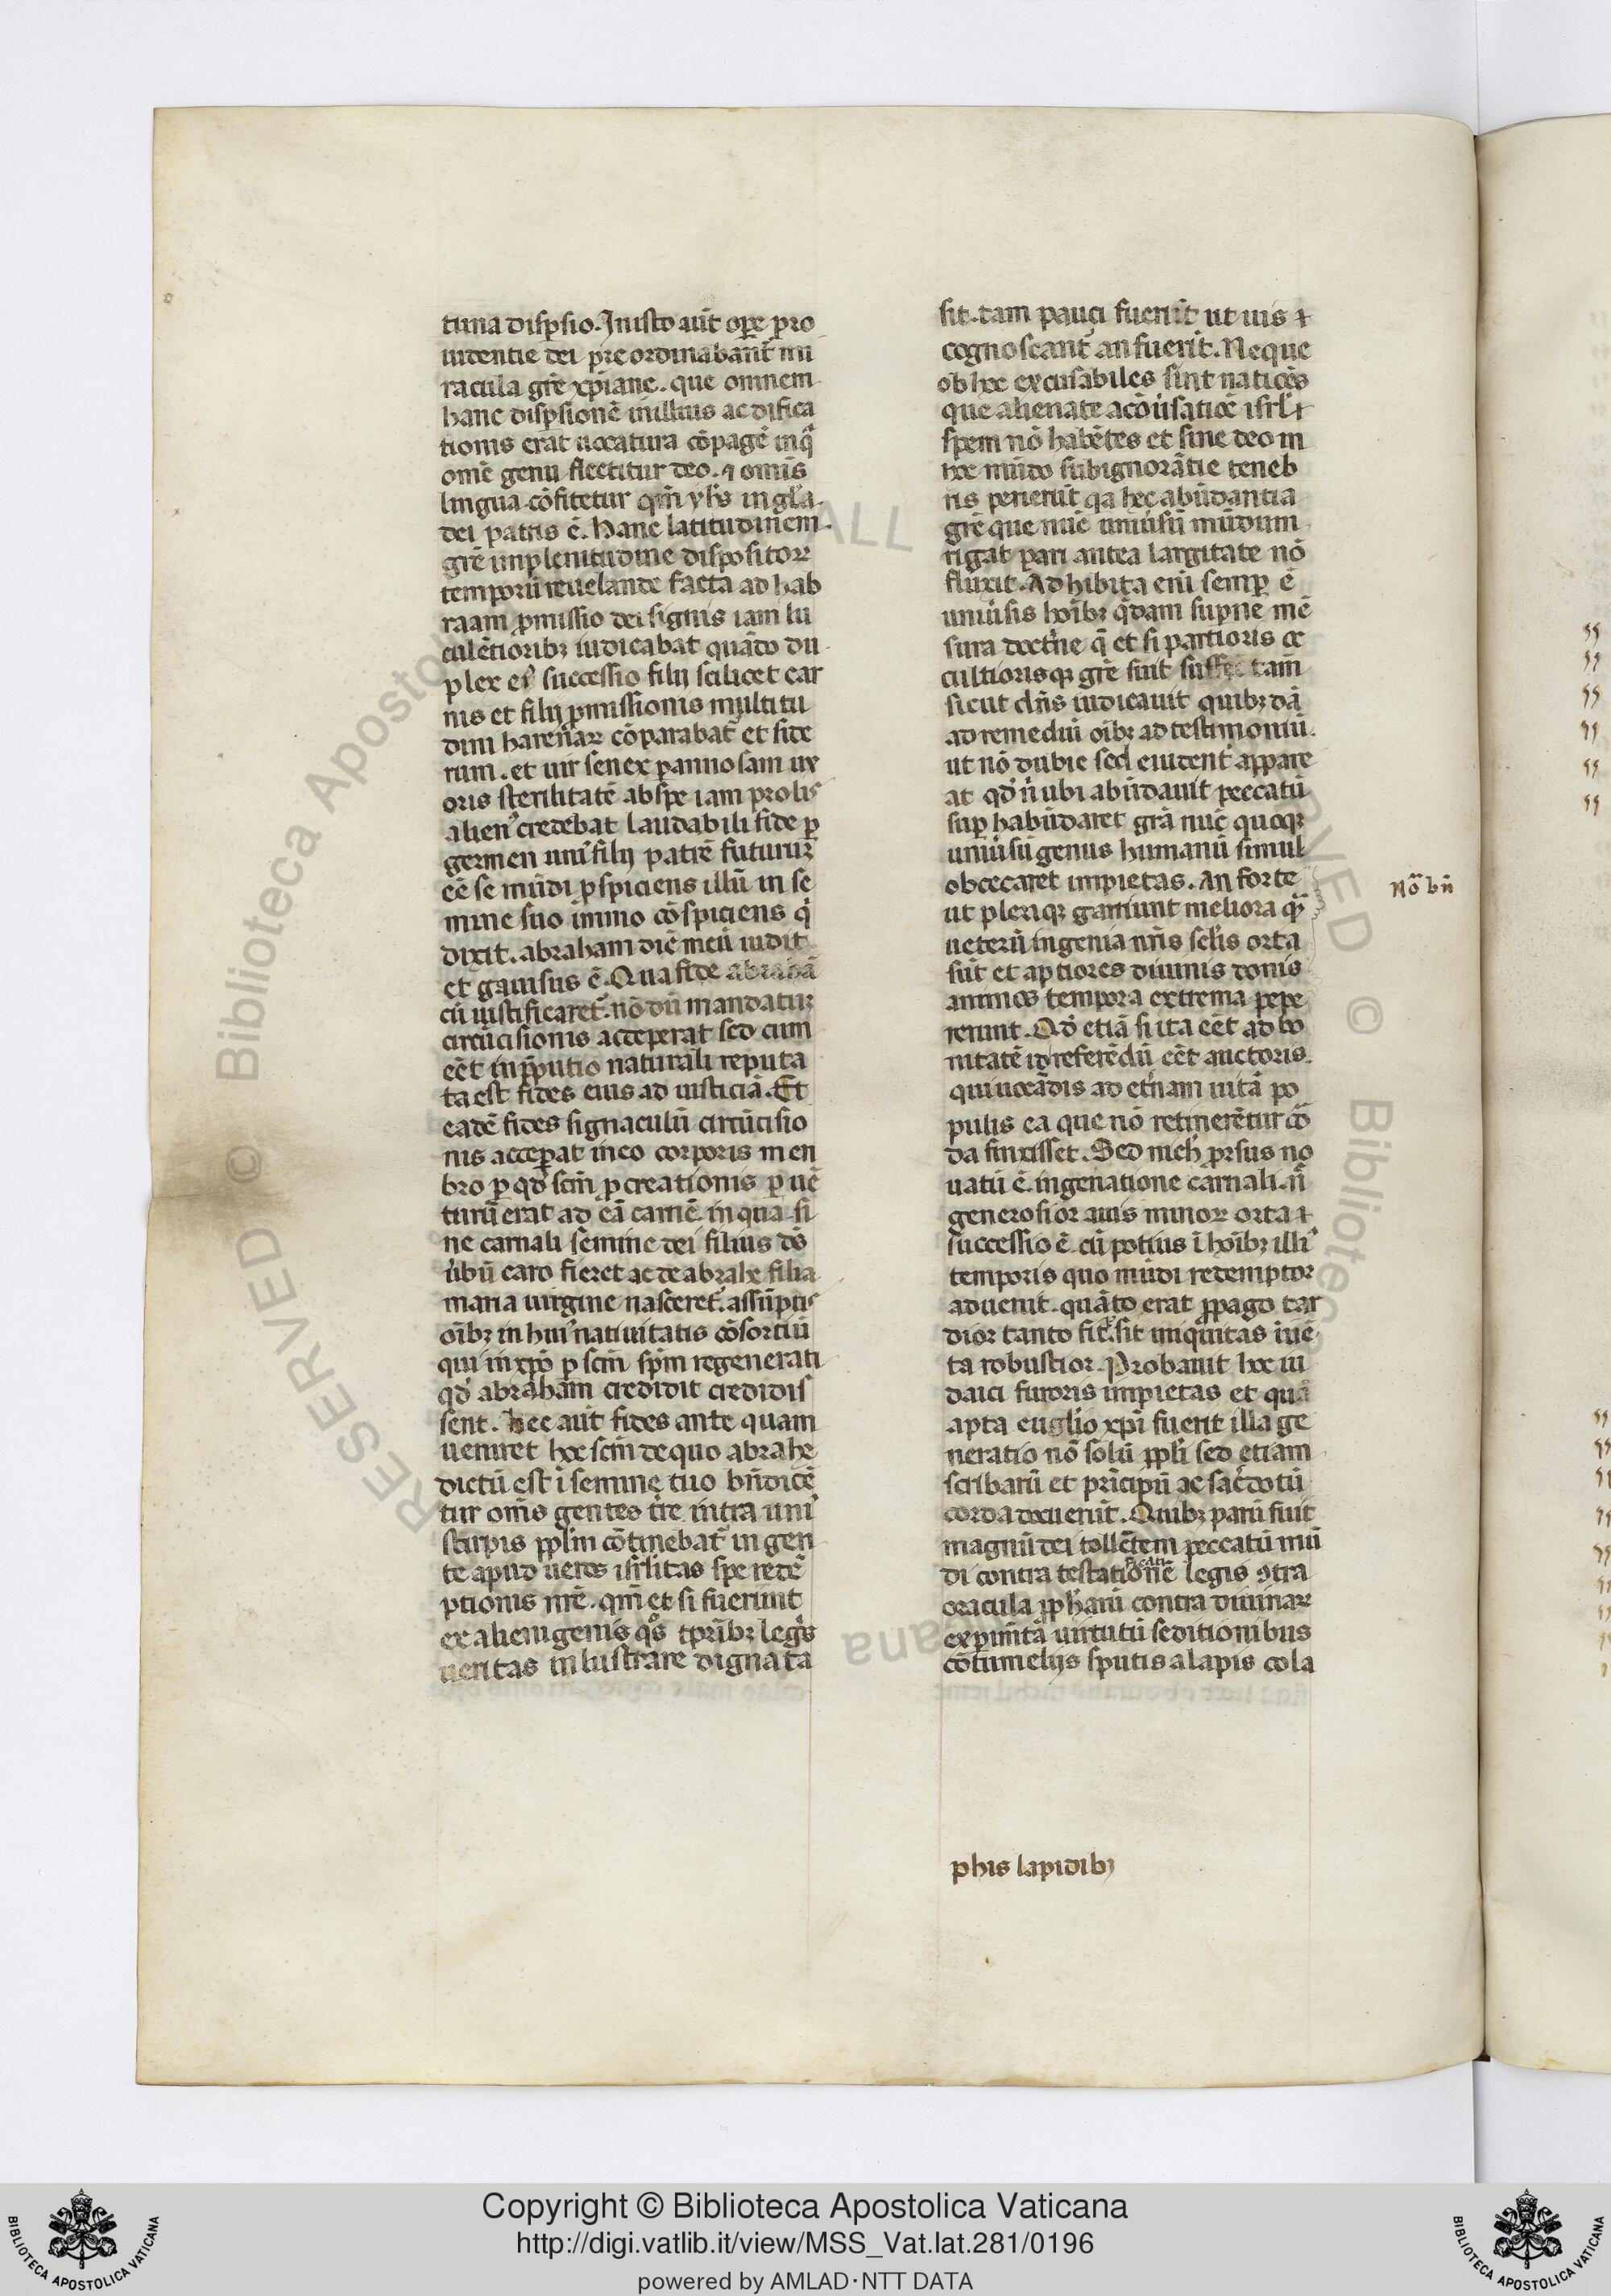 tura dispsio. In isto aut̄ ope pro
uidentie dei preordinabant̄ mi
racula grē xp̄iane. que omnem
hanc dispsionē in illius aedifica
tionis erat uocatura cōpagē in q̄
omē genu flectitur deo. ⁊ omīs
lingua cōfitetur qm̄ yhs in gl̄a
dei patris ē. Hanc latitudinem
grē in plenitudine dispositoꝝ
temporū reuelande facta ad hab
raam ꝓmissio dei signis iam lu
culētioribꝫ iudicabat quādo du
plex eiꝰ successio filij scilicet car
nis et filij ꝓmissionis multitu
dini harenaꝝ cōparabat̄ et side
rum. et uir senex ꝑannosam ux
oris sterilitatē ab spe iam prolis
alienꝰ credebat laudabili fide ꝑ
germen uniꝰ filij patrē futuruꝫ
eē se mūdi ꝑspiciens illū in se
mine suo immo cōspiciens q̇
dixit. abraham diē meū uidit
et gauisus ē. Qua fide abrahā
cū iustificaret̄. nōdū mandatuꝫ
circūcisionis acceperat sed cum
eēt in p̄putio naturali reputa
ta est fides eius ad iusticiā. Et
eadē fides signaculū circūcisio
nis acceꝑat in eo corporis men
bro ꝑ qd̄ scīn ꝓcreationis ꝑuē
turū erat ad eā carnē in qua si
ne carnali semine dei filius ds̄
ūbū caro fieret ac de abrahe filia
maria uirgine nasceret̄. assūptis
oībꝫ in huiꝰ natiuitatis cōsortiū
qui in xp̄o ꝑ scīn sp̄m regenerati
qd̄ abraham credidit credidis
sent. Hec aut̄ fides ante quam
ueniret hoc scīn de quo abrahe
dictū est ī semine tuo bn̄dicē
tur om̄s gentes tr̄e intra uniꝰ
stirpis ppl̄m cōtinebat̄ in gen
te apud ueros isrl̄itas spe redē
ptionis nr̄e. qm̄ et si fuerunt
ex alienigenis qͦs tp̄ribꝫ legis
ueritas inlustrare dignata
sit. tam pauci fuerūt ut uis ⁊
cognoscant̄ an fuerit. Neque
ob hoc excusabiles sint natiōēs
que alienate a cōūsatiōe isrl̄ ⁊
spem nō habētes et sine deo in
hoc mūdo sub ignorātie teneb
ris perierūt qa hec abūdantia
grē que nūc uniūsū mūdum
rigat pari antea largitate nō
fluxit. Adhibita enī semꝑ ē
uniūsis hoībꝫ q̄dam supne mē
sura doctrīe q̄ et si parcioris oc
cultiorisqꝫ grē fuit suffec tam̄
sicut dn̄s iudicauit quibꝫdā
ad remediū oībꝫ ad testimoniū.
ut nō dubie sed euident̄ appare
at qd̄ n̄ ubi abūdauit peccatū
suꝑhabūdaret grā nūc quoqꝫ
uniūsū genus humanū simul
obcecaret impietas. An forte
ut pleriqꝫ garriunt meliora qͣꝫ
ueterū ingenia nr̄is sclis orta
sūt et aptiores diuinis donis
animos tempora extrema pepe
rerunt. Qd̄ etiā si ita eēt ad bo
nitatē id referēdū eēt auctoris.
qui uocādis ad etn̄am uitā po
pulis ea que nō retinerētur cor
da finxisset. Sed nich̄ prsus no
uatū ē. in genatione carnali. n̄
generosior auis minoꝝ orta ⁊
successio ē. cū potius ī hoībꝫ illiꝰ
temporis quo mūdi redemptor
aduenit. quāto erat ꝓpago tar
dior tanto fit. sit iniquitas īuē
ta robustior. Probauit hoc iu
daici furoris impietas et quā
apta euglio xp̄i fuerit illa ge
neratio nō solū ppl̄i sed etiam
scribarū et prīcipū ac sac̄dotū
corda docuerūt. Quibꝫ parū fuit
magnū dei tollētem peccatū mū
di contra testationē legis ꝯtra
oracula ꝓphetarū contra diuinaꝝ
experim̄ta uirtutū seditionibus
cōtumelijs sputis alapis cola
nō bn̄
phis lapidibꝫ
Copyright © Biblioteca Apostolica Vaticana
http://digi.vatlib.it/view/MSS_Vat.lat.281/0196
powered by AMLAD·NTT DATA